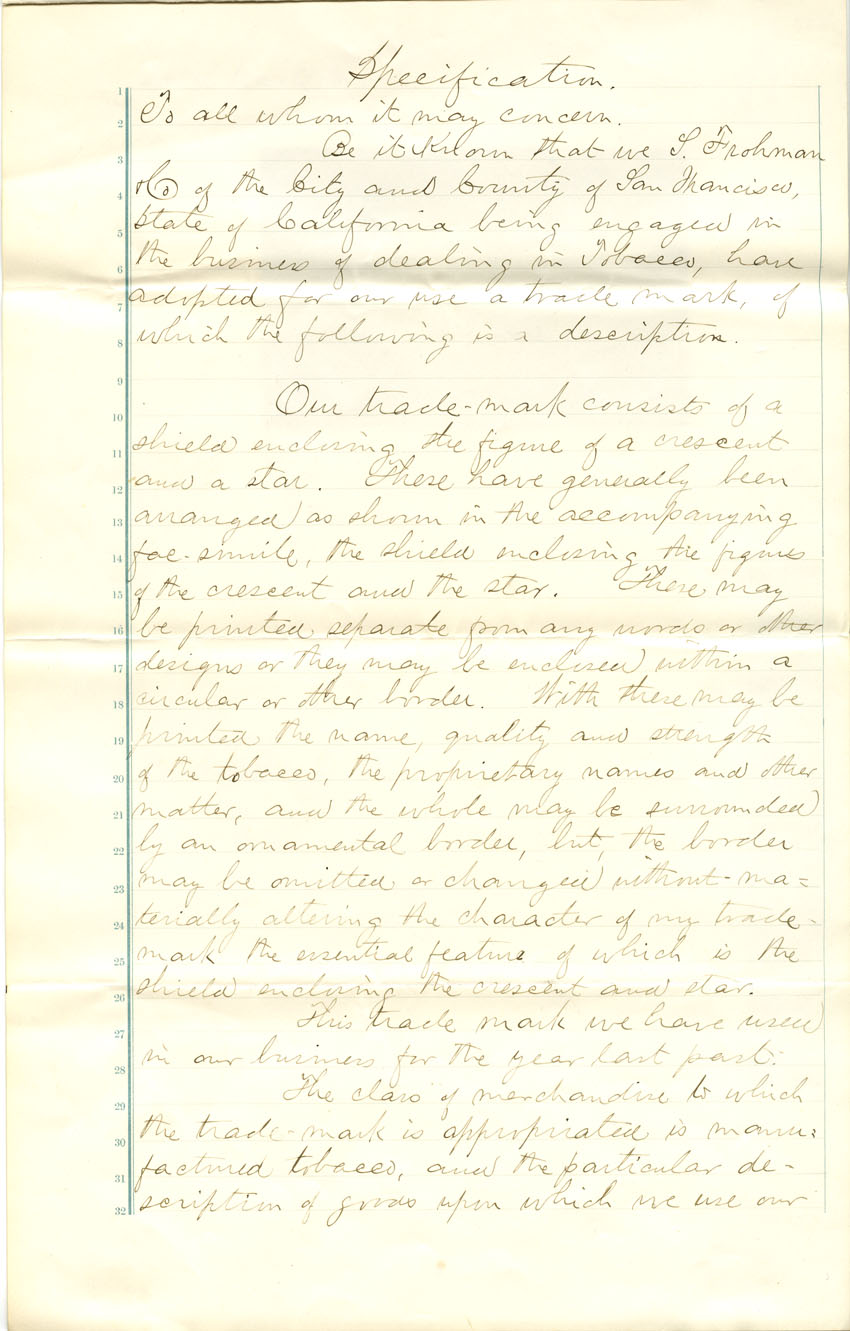 Specification.
1
2 To all whom it may concern.
3 Be it Known that we S. Frohman
4 & Co of the City and County of San Francisco,
5 State of California being engaged in
6 the business of dealing in Tobacco, have
7 adopted for our use a trade mark, of
8 which the following is a description.
9
10 Our trade-mark consists of a
11 shield enclosing the figure of a crescent
12 and a star. These have generally been
13 arranged as shown in the accompanying
14 fac-simile, the shield enclosing the figures
15 of the crescent and the star. These may
16 be printed separate from any words or other
17 designs or they may be enclosed within a
18 circular or other border. With these may be
19 printed the name, quality and strength
20 of the tobacco, the proprietary names and other
21 matter, and the whole may be surrounded
22 by an ornamental border, but, the border
23 may be omitted or changed without ma=
24 terially altering the character of my trade-
25 mark the essential feature of which is the
26 shield enclosing the crescent and star.
27 This trade mark we have used
28 in our business for the year last past.
29 The class of merchandise to which
30 the trade-mark is appropriated is manu=
31 factured tobacco, and the particular de-
32 scription of goods upon which we use our